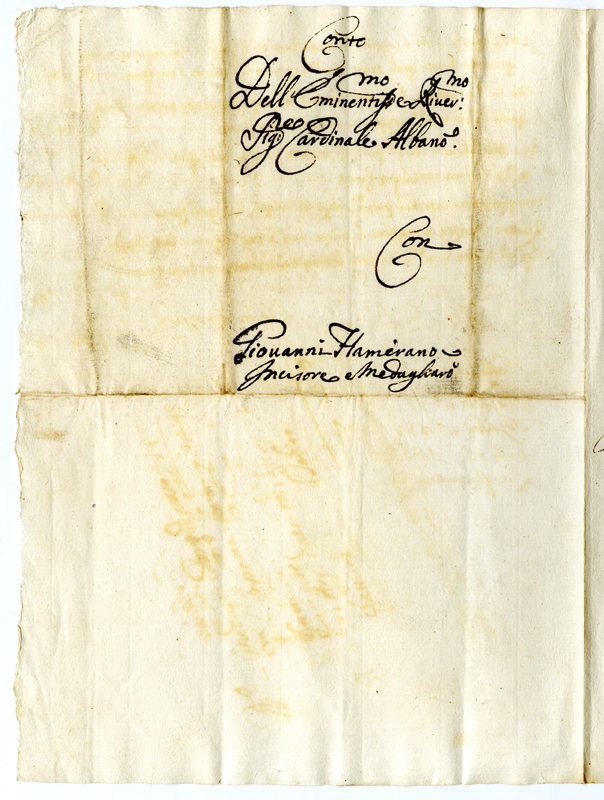 Conto
Dell'Eminentiss.mo e River.mo
Sig.re Cardinale Albano.
Con
Giouanni Hamerano
Incisore e Medagliaro